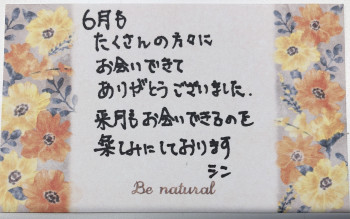 6月も
たくさんの方々に
お会いできて
ありがとうございました.
来月もお会いできるのを
楽しみにしております
シン
Be natural